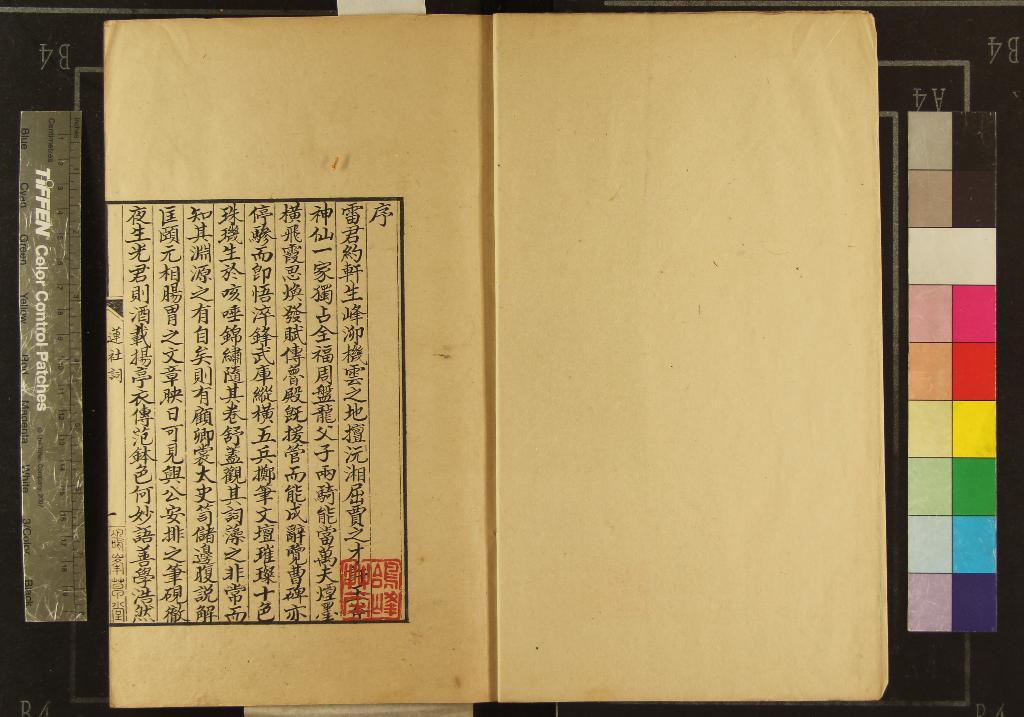 序
雷君約軒生峰泖機雲之地擅沅湘屈賈之才
神仙一家獨占全福周盤龍父子兩騎能當萬夫煌墨
橫飛霞思煥發賦傳魯殿旣援管而能成辭覽曹碑亦
停驂而卽悟淬鋒武庫縱橫五兵擲筆文壇璀璨十色
珠璣生於咳唾錦繡隨其卷舒蓋觀其詞藻之非常而
知其淵源之有自矣則有顧卿裳太史笥儲邊腹說解
匡頤元相腸胃之文章映日可見與公安排之筆硯徹
夜生光君則酒載揚亭衣傳范鉢色何妙語善學浩然
蓮社詞
一
草堂
鳴峰
B4
B4
A4
TIFFEN Color Control Patches
Centimetres
Inches
Blue
Cyan
Green
Yellow
Red
Magenta
White
3/Color
Black
B4
B4